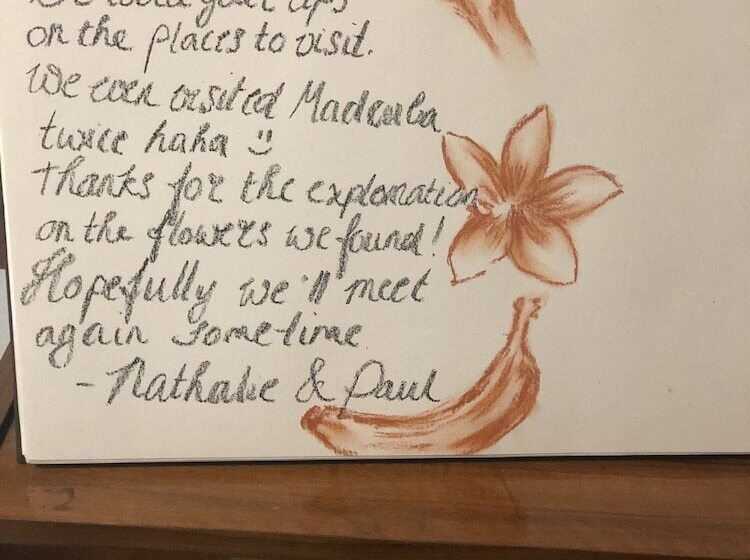 on the places to visit.
We even visited Madeulba
twice haha :)
Thanks for the explanation
on the flowers we found!
Hopefully we'll meet
again sometime
- Nathalie & Paul